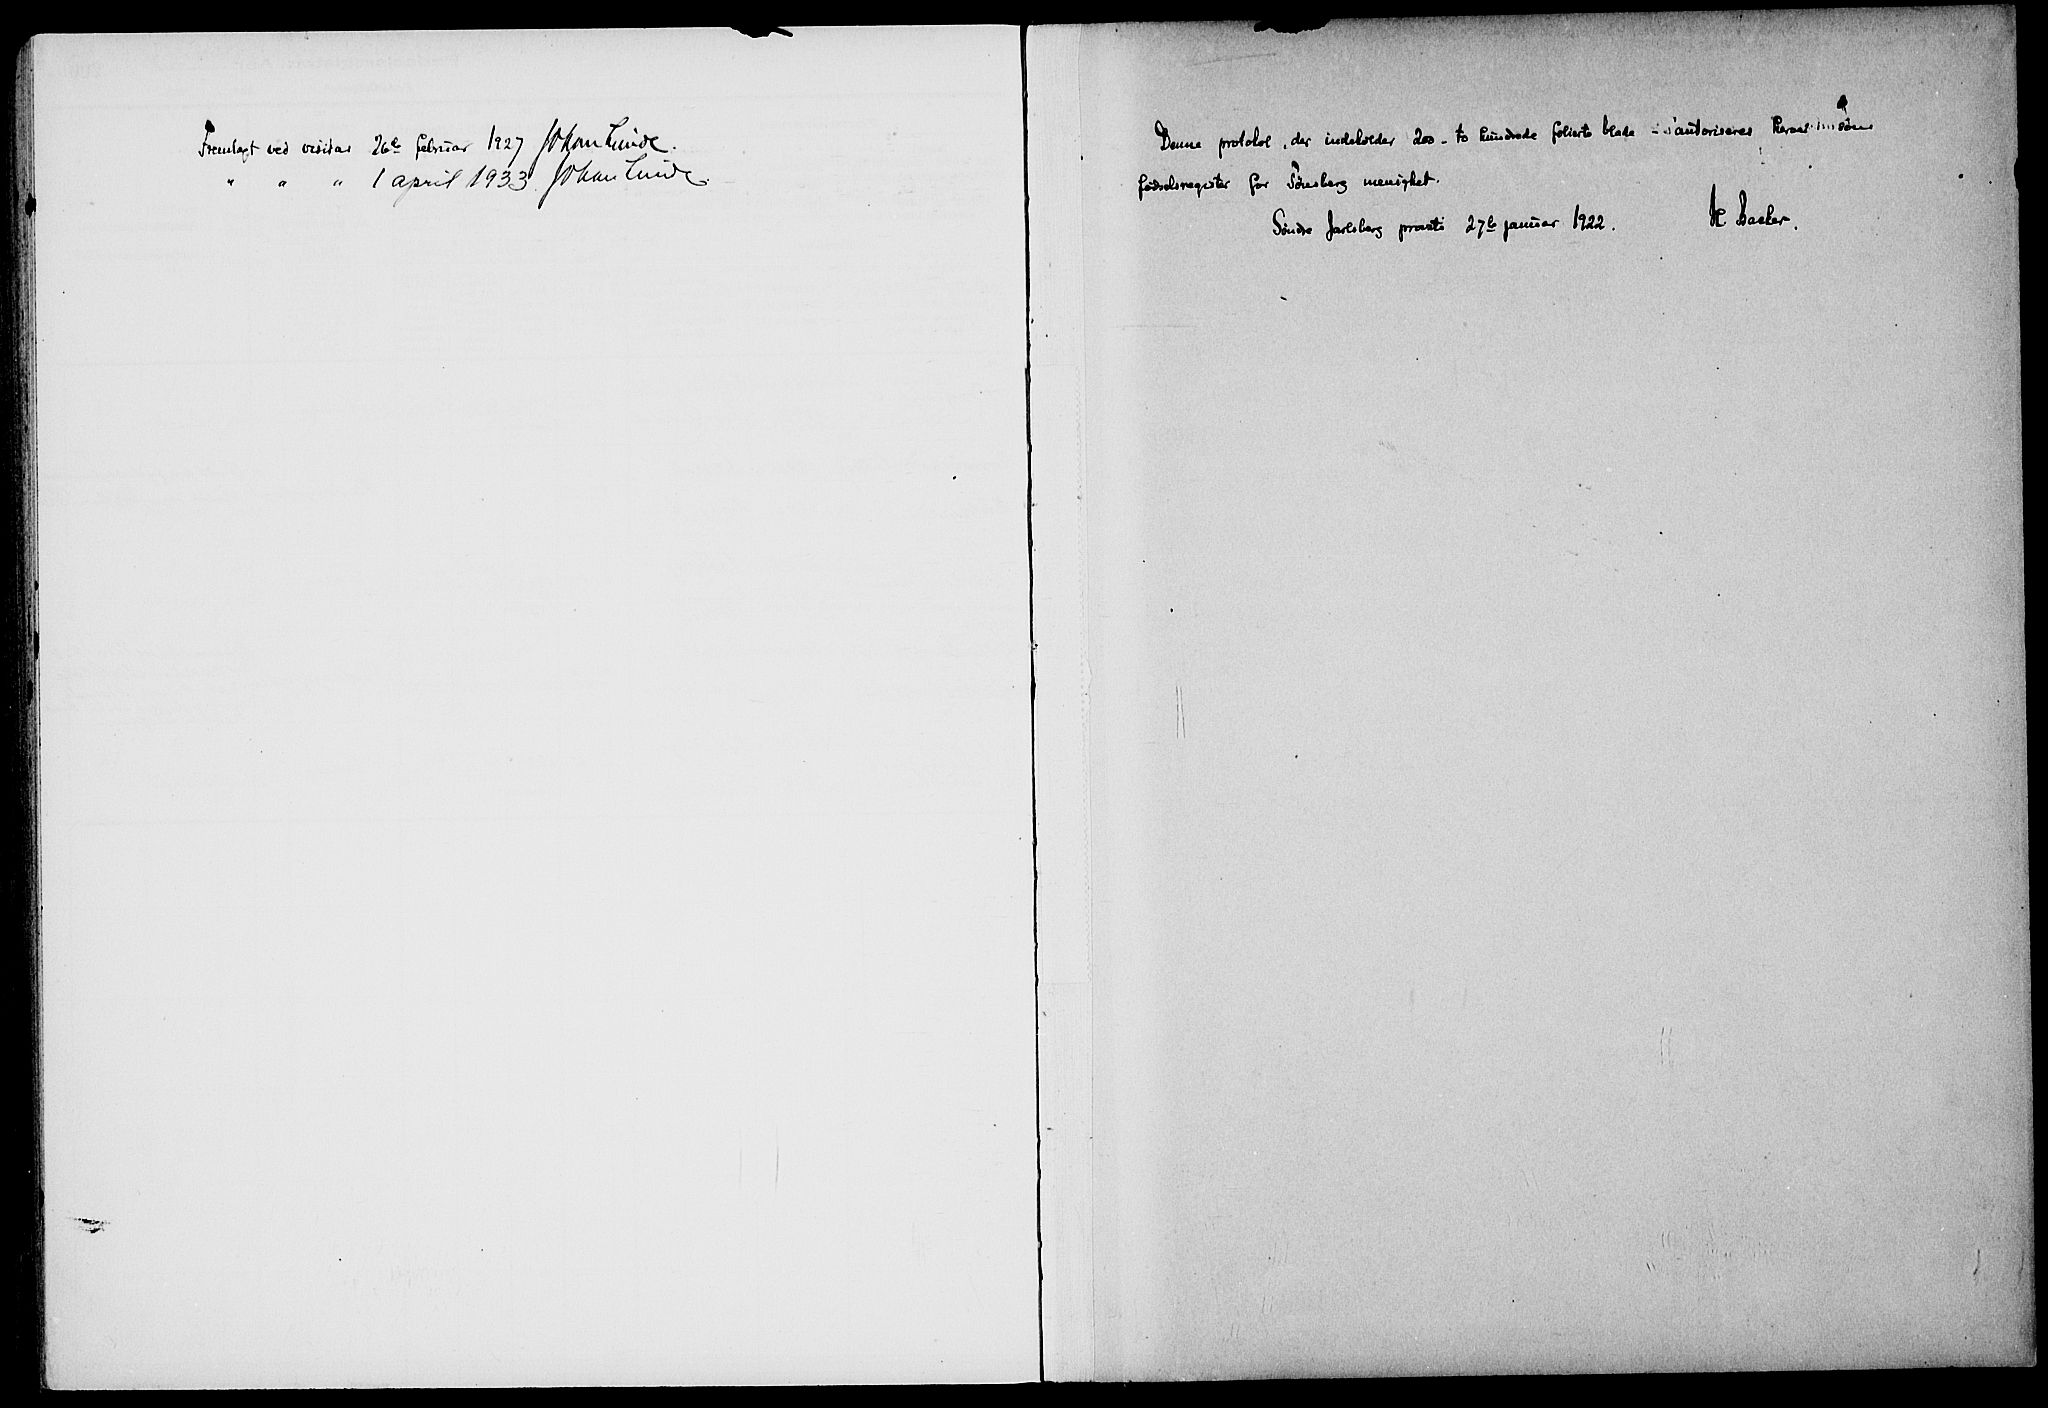 Fremlagt ved visitas 26de februar 1927 Johan Lunde.
" " " 1 april 1933. Johan Lunde.
Denne protokol, der indeholder 200 - to hundrede folierte blade - autoriseres herved som
fødselsregister for Tønsberg menighet.
Søndre Jarlsberg prosti 27de januar 1922. H Backer.